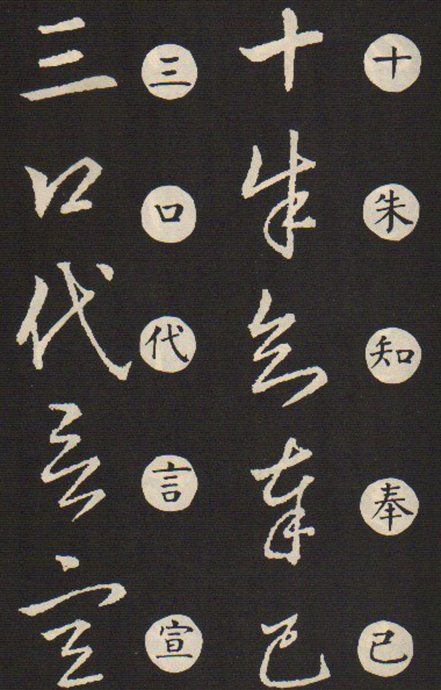 十朱知奉已
十朱知奉已
三口代言宣
三口代言宣